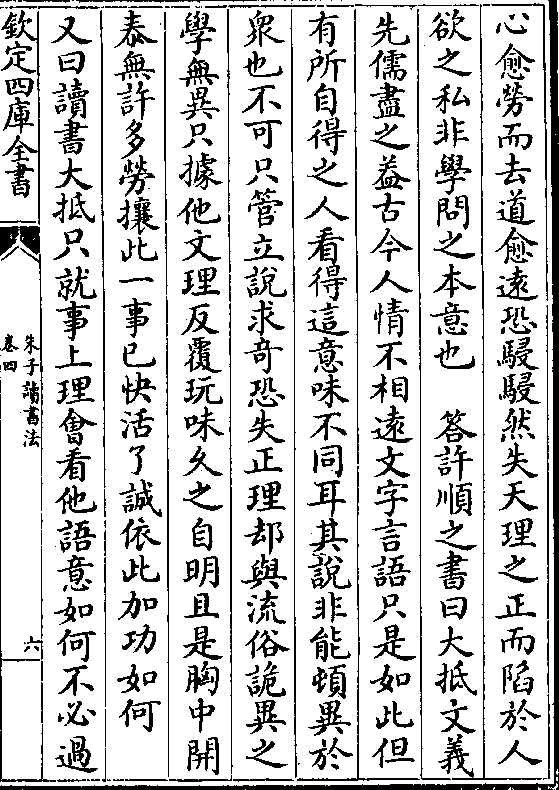 心愈勞而去道愈遠恐駸駸然失天理之正而陷於人
欲之私非學問之本意也　答許順之書曰大抵文義
先儒盡之葢古今人情不相遠文字言語只是如此但
有所自得之人看得這意味不同耳其說非能頓異於
衆也不可只管立說求奇恐失正理却與流俗詭異之
學無異只據他文理反覆玩味久之自明且是胸中開
泰無許多勞攘此一事已快活了誠依此加功如何
又曰讀書大抵只就事上理㑹看他語意如何不必過
欽定四庫全書
朱子讀書法
卷四
六